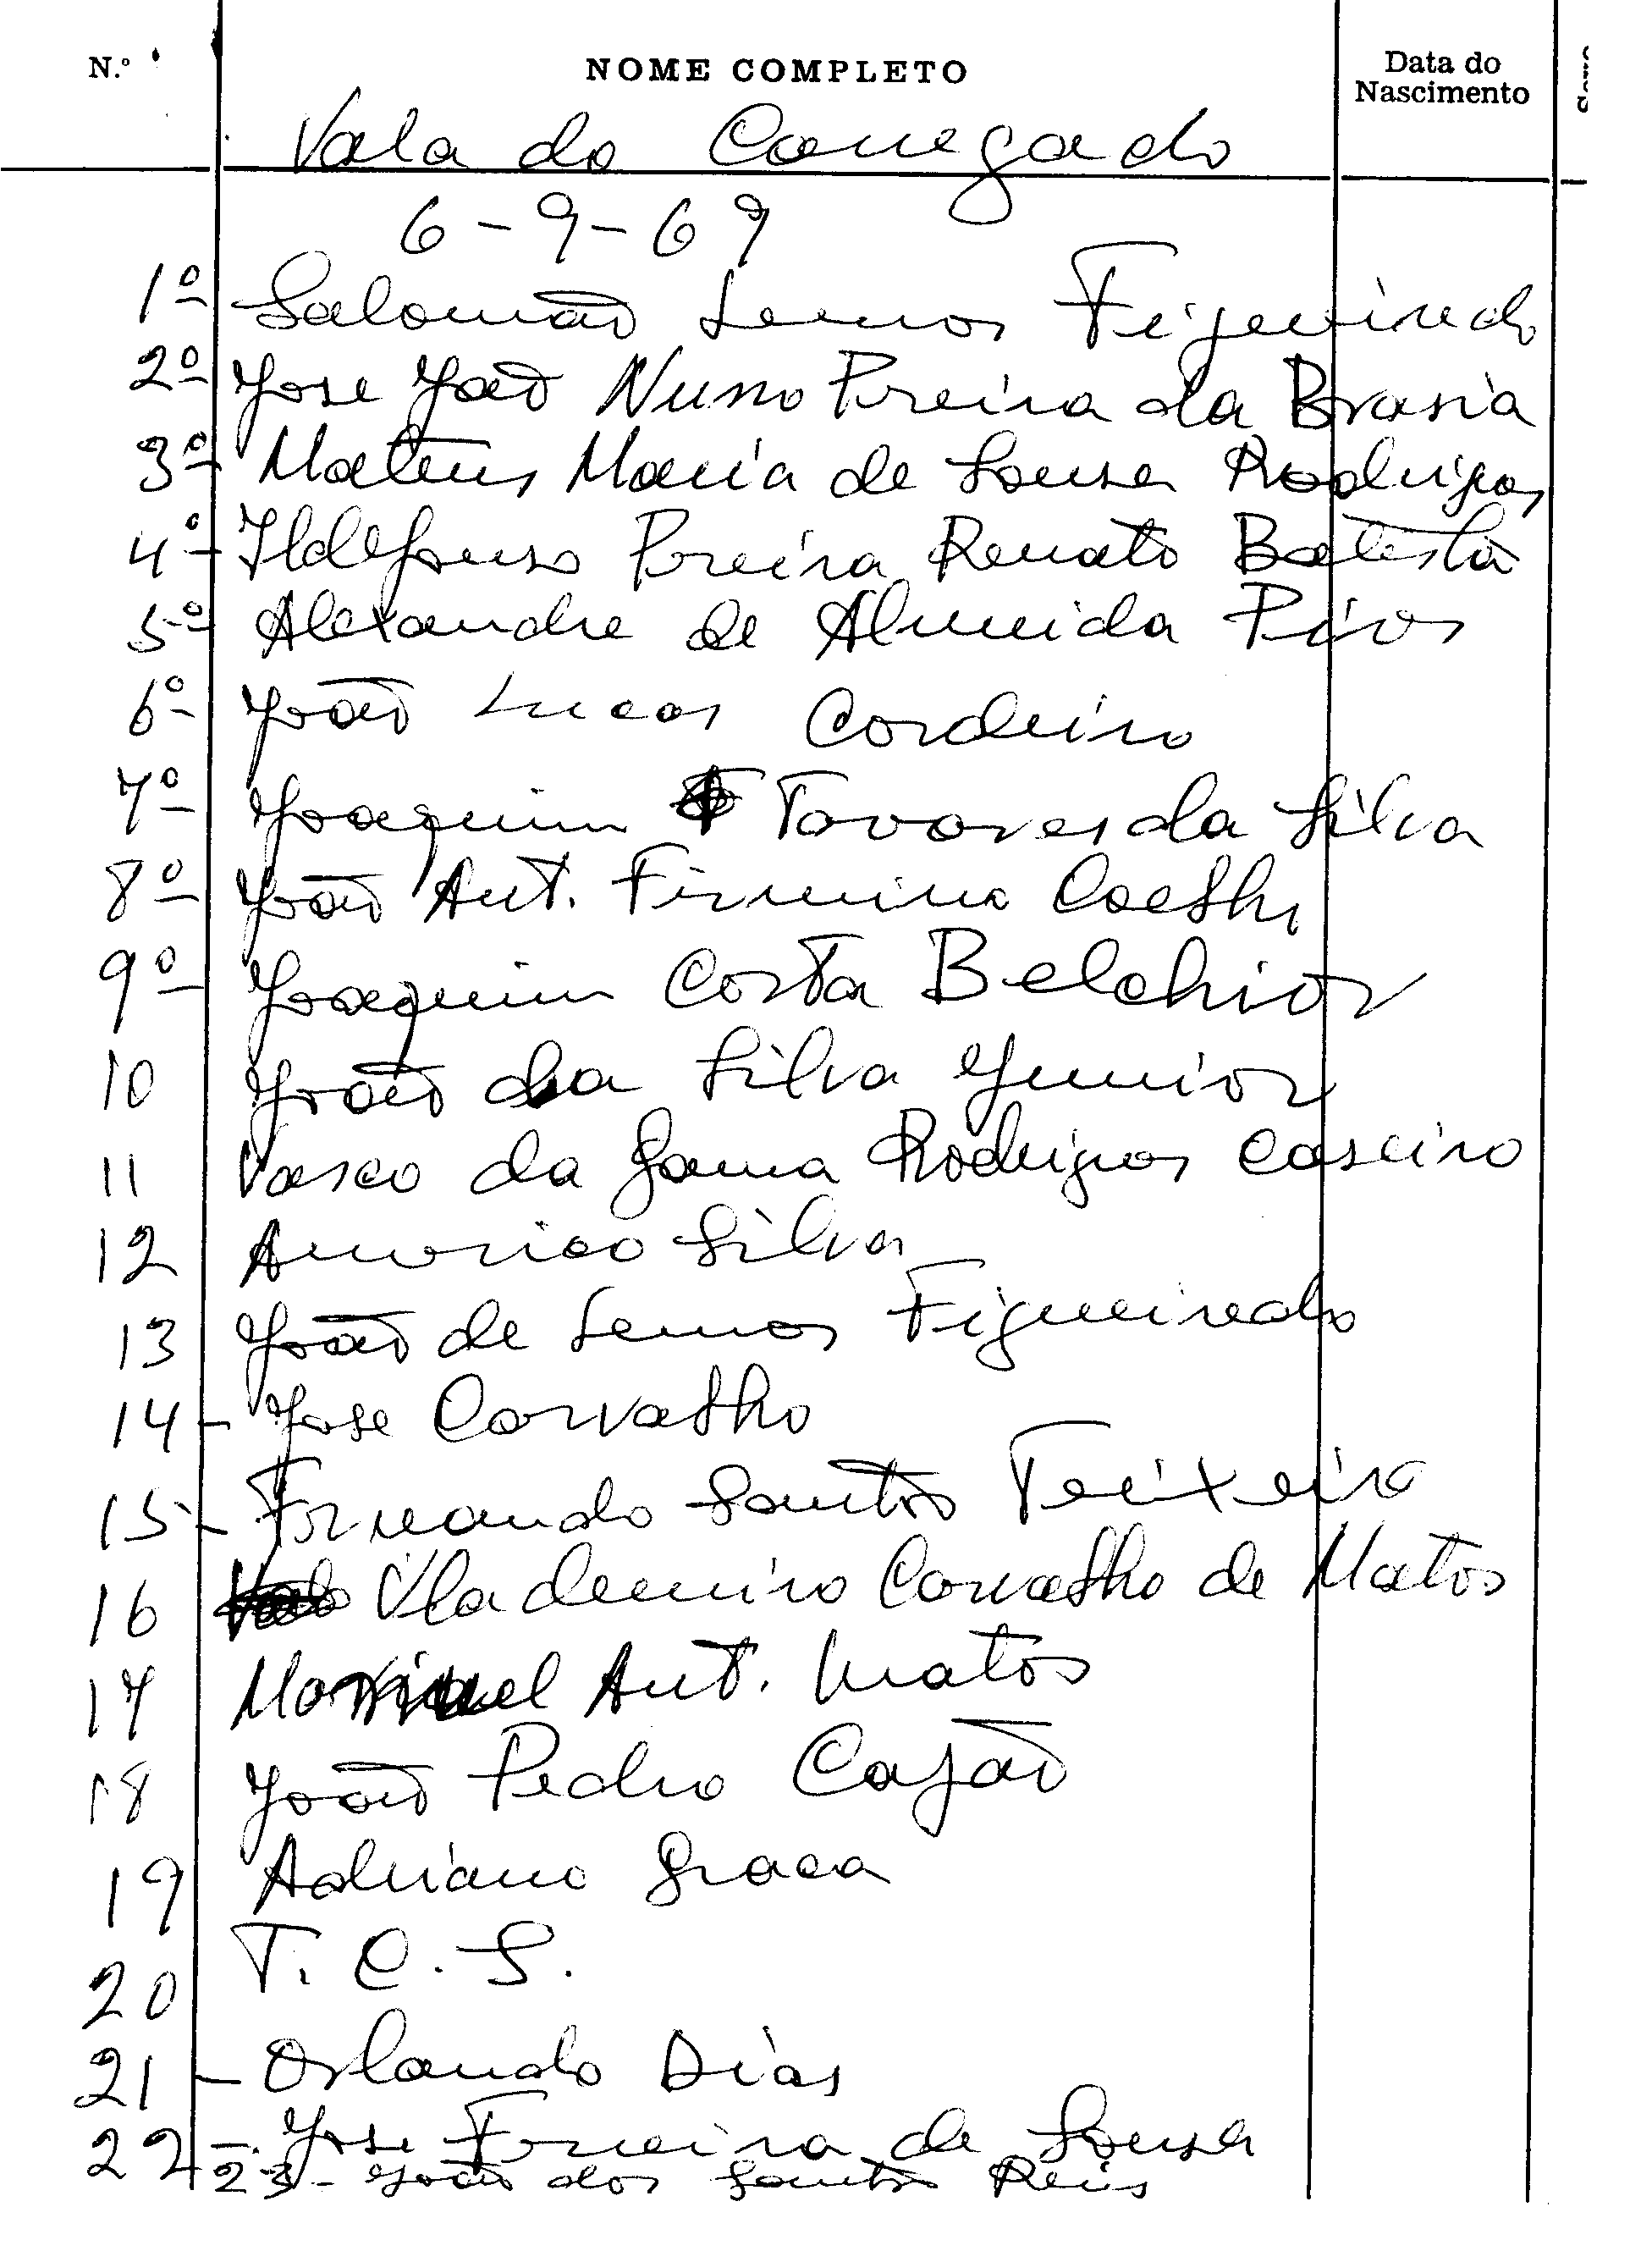 N.º NOME COMPLETO Data do Nascimento
Vala do Conegado
6-9-69
1º Salomão Lemos Figueiredo
2º Jose João Nuno Pereira da Brasia
3º Mateus Maria de Sousa Rodrigos
4º Ildefonso Pereira Renato Batista
5º Alexandre de Almeida Pires
6º João Lucas Cordeiro
7º Joaquim Tavares da Silva
8º João Ant. Firmino Coelho
9º Joaquim Costa Belchior
10 João da Silva Junior
11 Vasco da Gama Rodrigos Caseiro
12 Americo Silva
13 João de Lemos Figueiredo
14 - Jose Carvalho
15 - Fernando Santos Teixeira
16 Vlademiro Carvalho de Matos
17 Manuel Ant. Matos
18 João Pedro Cajão
19 Adriano Graca
20 T. C. S.
21 - Orlando Dias
22 - Jose Ferreira de Sousa
23 - João dos Santos Reis